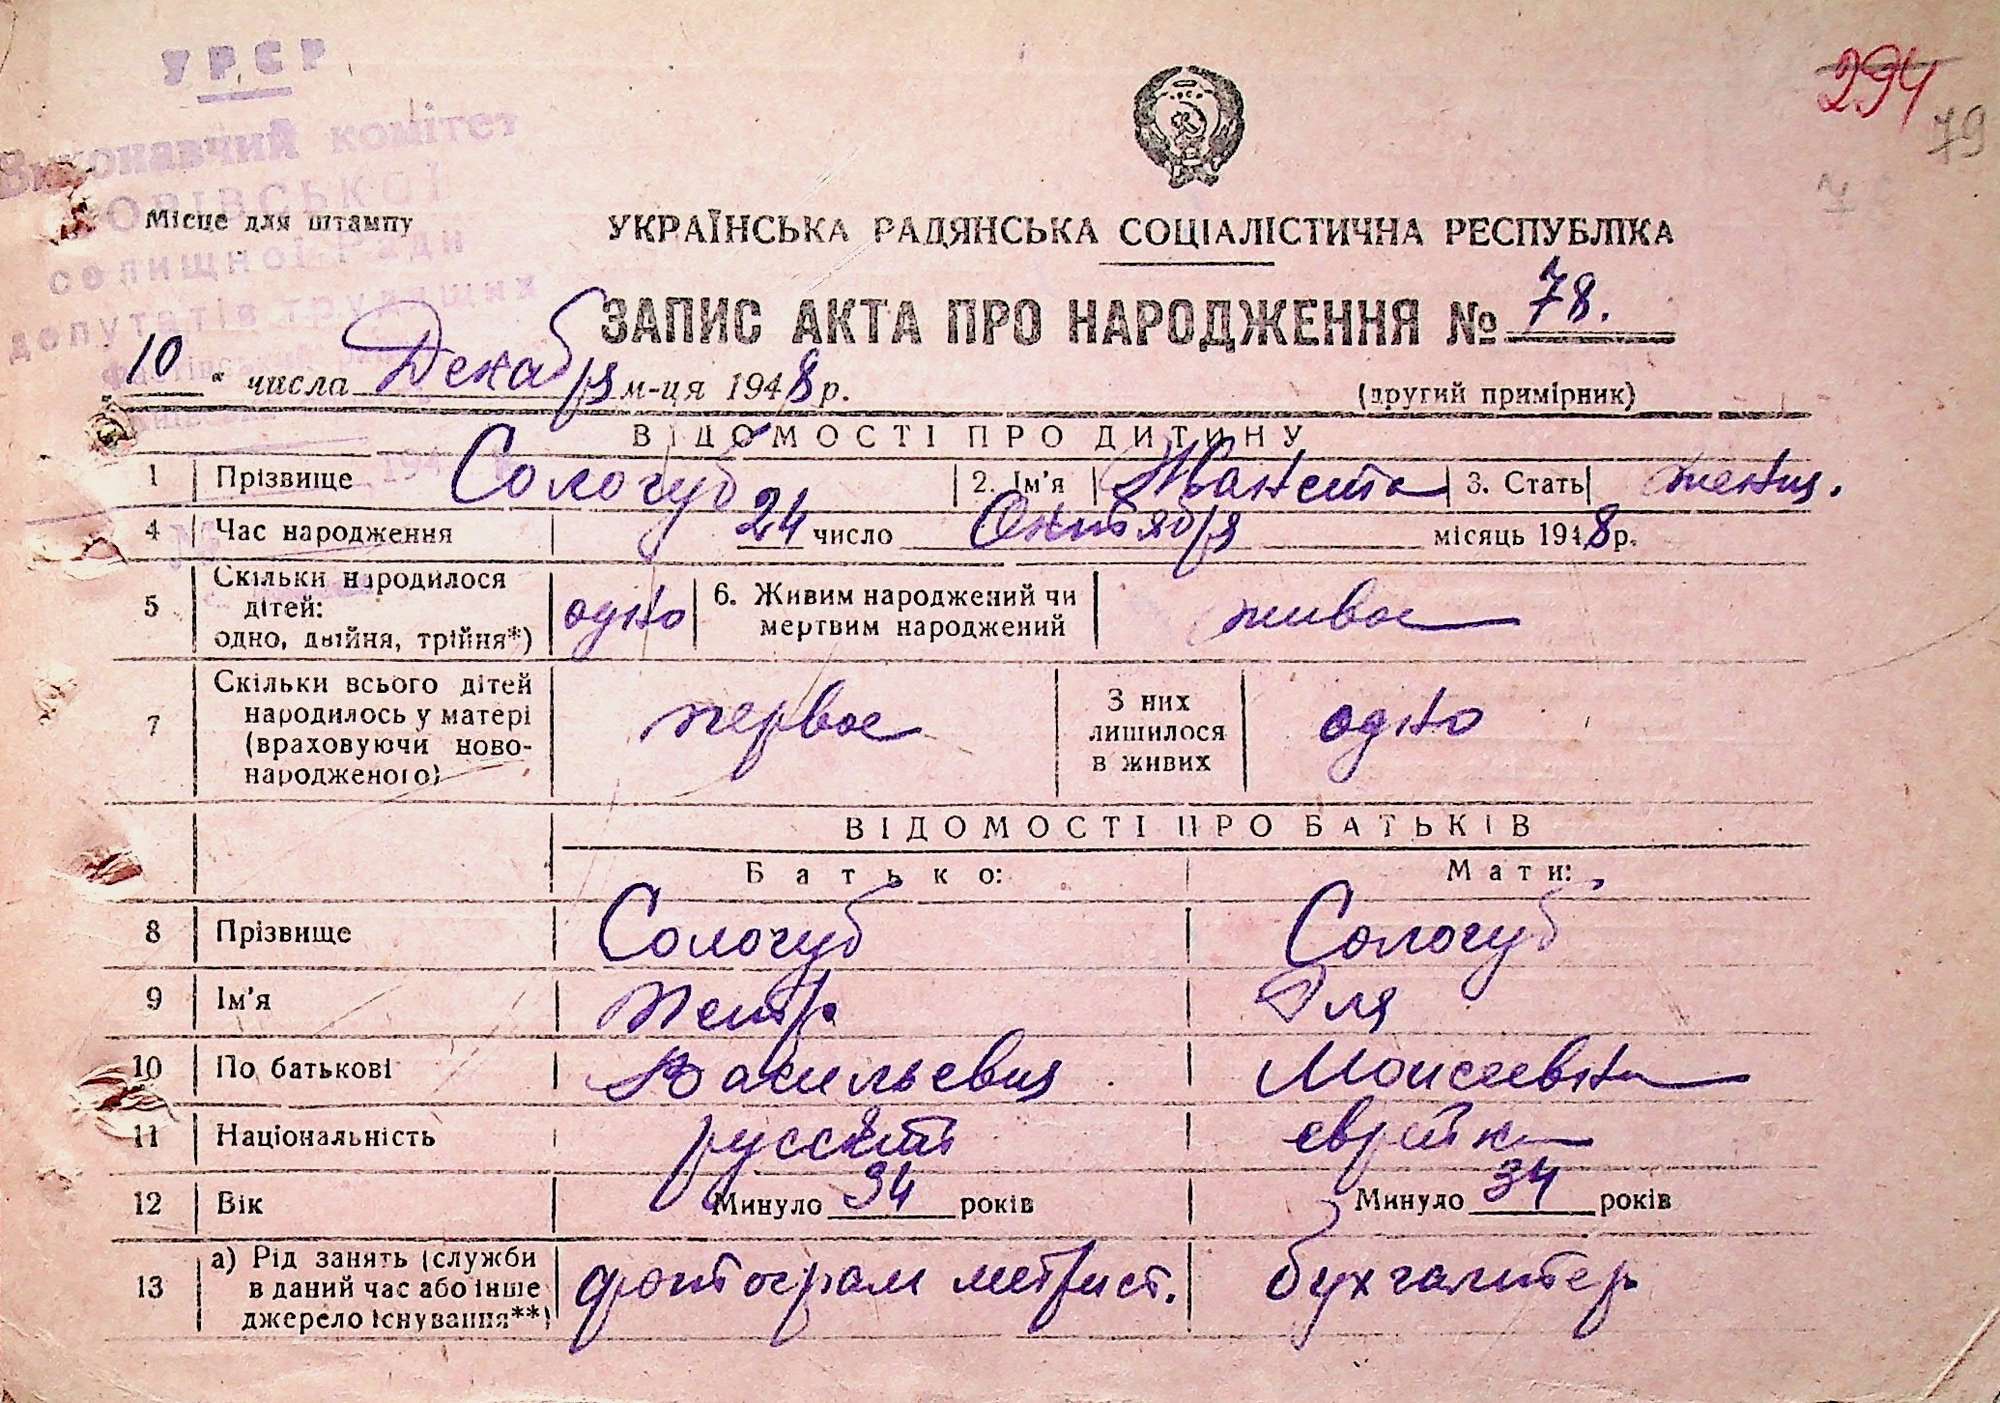 УРСР
294
79
Виконавчий комітет
Місце для штампу
селищної ради
депутатів трудящих
УКРАЇНСЬКА РАДЯНСЬКА СОЦІАЛІСТИЧНА РЕСПУБЛІКА
ЗАПИС АКТА ПРО НАРОДЖЕННЯ № 78.
10 " числа Декабря м-ця 1948 р.
(другий примірник)
ВІДОМОСТІ ПРО ДИТИНУ
1 Прізвище Сологуб 2. Ім'я Жанета 3. Стать женщ.
4 Час народження 24 число Октября місяць 1948 р.
5 Скільки народилося дітей: одно, двійня, трійня*) одно 6. Живим народжений чи мертвим народжений живое
7 Скільки всього дітей народилось у матері (враховуючи новонародженого) первое З них лишилося в живих одно
ВІДОМОСТІ ПРО БАТЬКІВ
Батько: Мати:
8 Прізвище Сологуб Сологуб
9 Ім'я Петр. Эля
10 По батькові Васильевич Моисеевна
11 Національність русский еврейка
12 Вік Минуло 34 років Минуло 34 років
13 а) Рід занять (служби в даний час або інше джерело існування**) фотограмметрист. бухгалтер.